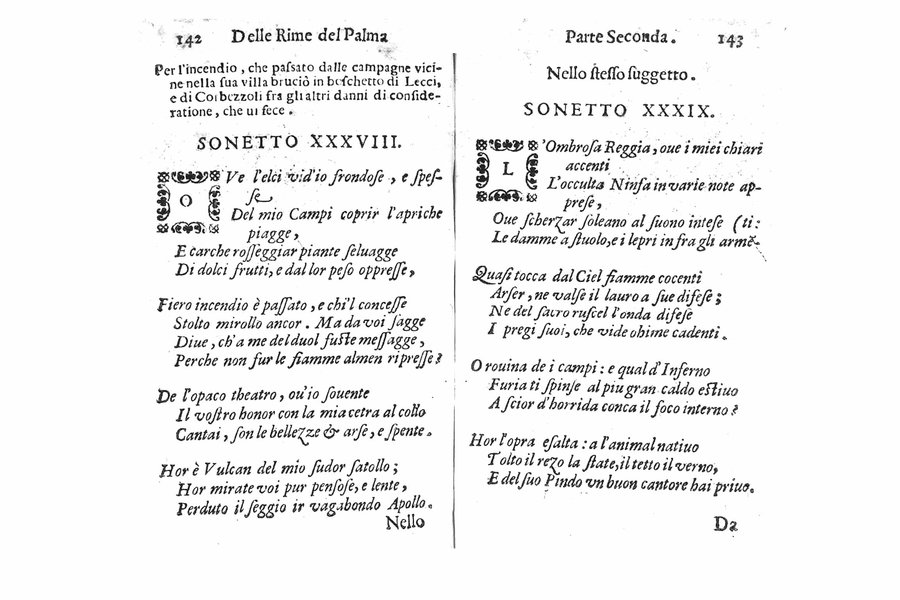 142 Delle Rime del Palma
Per l'incendio, che paſsato dalle campagne vici-
ne nella ſua villa bruciò in boſchetto di Lecci,
e di Corbezzoli fra gli altri danni di conſide-
ratione, che ui fece.
SONETTO XXXVIII.
OVe l'elci vid'io frondoſe, e ſpeſ-
ſe
Del mio Campi coprir l'apriche
piagge,
E carche roſſeggiar piante ſeluagge
Di dolci frutti, e dal lor peſo oppreſſe,
Fiero incendio è paſſato, e chi'l conceſſe
Stolto mirollo ancor. Ma da voi ſagge
Diue, ch'a me del duol fuſte meſſagge,
Perche non fur le fiamme almen ripreſſe?
De l'opaco theatro, ou'io ſouente
Il voſtro honor con la mia cetra al collo
Cantai, ſon le bellezze & arſe, e ſpente.
Hor è Vulcan del mio ſudor ſatollo;
Hor mirate voi pur penſoſe, e lente,
Perduto il ſeggio ir vagabondo Apollo.
Nello
Parte Seconda. 143
Nello ſteſſo ſuggetto.
SONETTO XXXIX.
L'Ombroſa Reggia, oue i miei chiari
accenti
L'occulta Ninfa in varie note ap-
preſe,
Oue ſcherzar ſoleano al ſuono inteſe (ti:
Le damme a ſtuolo, e i lepri infra gli armē-
Quaſi tocca dal Ciel fiamme cocenti
Arſer, ne valſe il lauro a ſue difeſe;
Ne del ſacro ruſcel l'onda difeſe
I pregi ſuoi, che vide ohime cadenti.
O rouina de i campi: e qual d'Inferno
Furia ti ſpinſe al piu gran caldo eſtiuo
A ſcior d'horrida conca il foco interno?
Hor l'opra eſalta: a l'animal natiuo
Tolto il rezo la ſtate, il tetto il verno,
E del ſuo Pindo vn buon cantore hai priuo.
Da